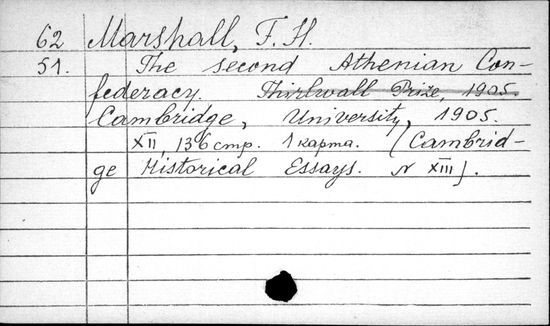 62 Marshall, F. H.
51. The second Athenian Con-
federacy. Thirlwall Prize, 1905.
Cambridge, University, 1905.
XII, 136 стр. 1 карта. (Cambrid-
ge Historical Essays. N XIII).